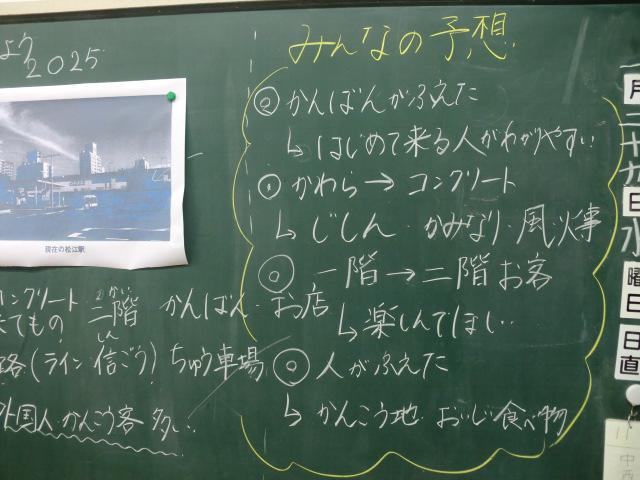 よう
2025
現在の松江駅
コンクリート
たてもの 二階 かんばん お店
かい
路(ライン 信ごう) ちゅう車場
しん
外国人 かんこう客 多い
みんなの予想
② かんばんがふえた
↳ はじめて来る人がわかりやすい
① かわら → コンクリート
↳ じしん・かみなり・風火事
◎ 一階→二階 お客
↳ 楽しんでほしい
◎ 人がふえた
↳ かんこう地 おいしい食べ物
月
二十九
日
水
曜日
日直